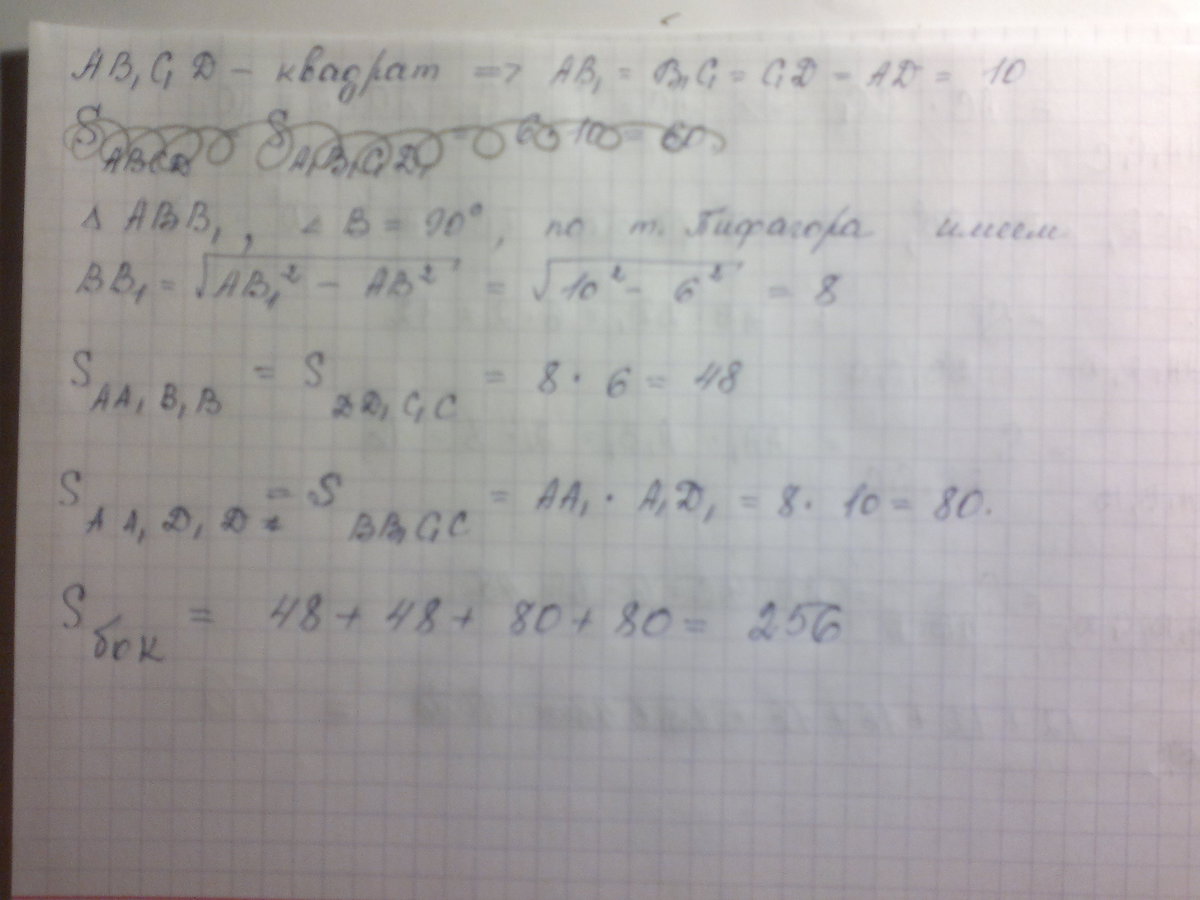 AB₁C₁D – квадрат => AB₁ = B₁C₁ = C₁D = AD = 10
S ABCD = S A₁B₁C₁D₁ = 6 · 10 = 60
Δ ABB₁, ∠ B = 90°, по т. Пифагора имеем
BB₁ = √(AB₁² – AB²) = √(10² – 6²) = 8
S AA₁B₁B = S DD₁C₁C = 8 · 6 = 48
S AA₁D₁D = S BB₁C₁C = AA₁ · A₁D₁ = 8 · 10 = 80.
S бок = 48 + 48 + 80 + 80 = 256